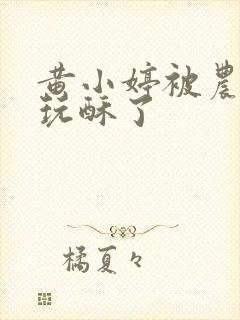 黄小婷被農
玩酥了
橘夏々